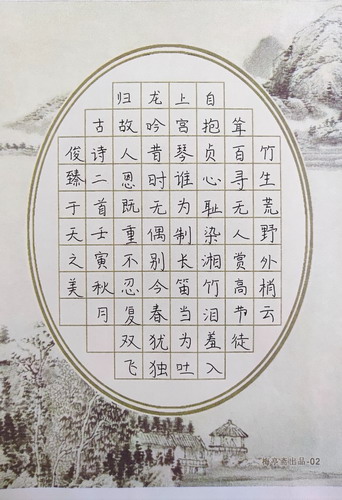 竹生荒野外梢云
耸百寻无人赏高节徒
自抱贞心耻染湘竹泪羞入
上宫琴谁为制长笛当为吐
龙吟昔时无偶别今春犹独
归故人恩既重不忍复双飞
古诗二首壬寅秋月
俊臻于天之美
梅亭斋出品-02